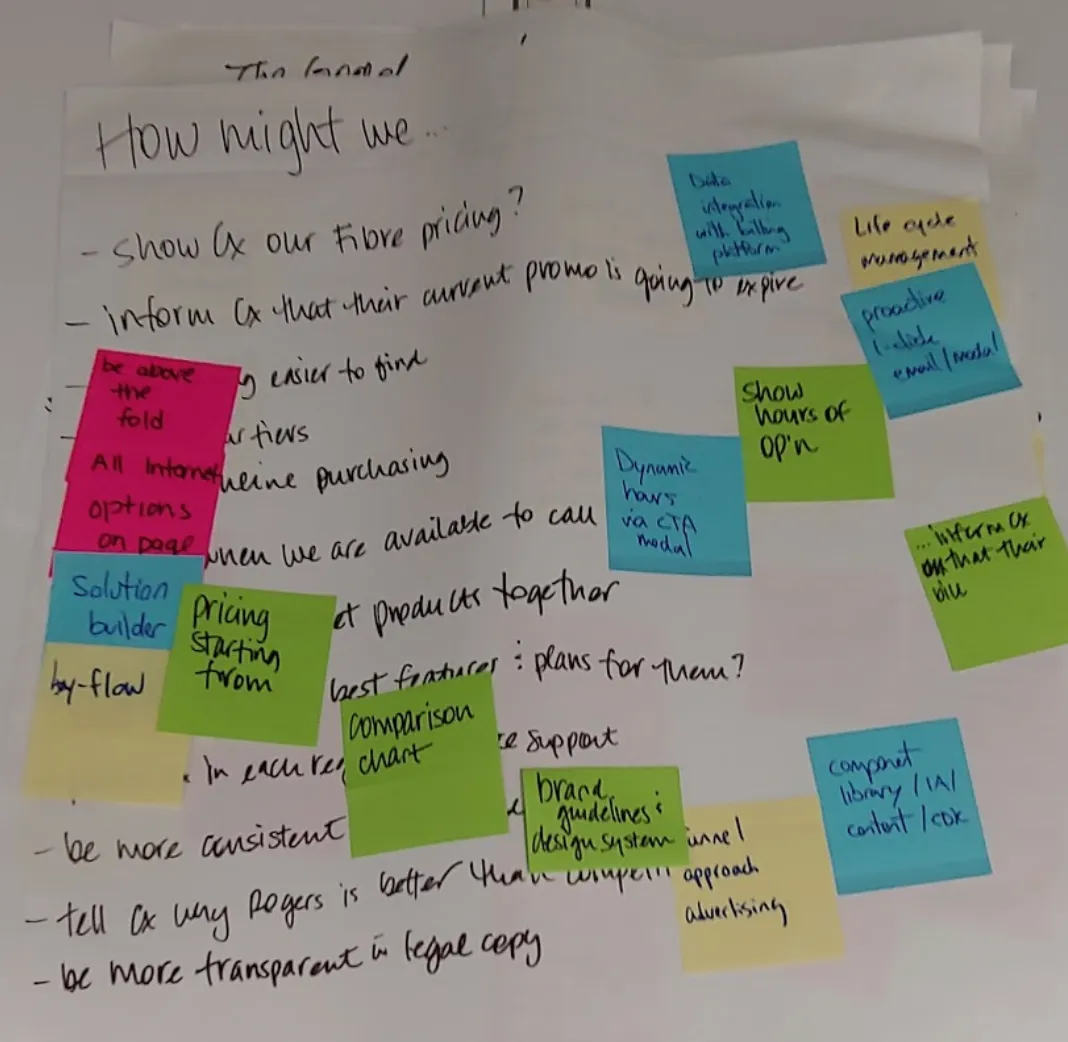 How might we...
- show Cx our Fibre pricing?
- inform Cx that their current promo is going to expire
easier to find
tiers
purchasing
when we are available to call
products together
best features : plans for them?
in each
support
- be more consistent
- tell Cx why Rogers is better than
- be more transparent in legal copy
Data
integration
with billing
platform
Life cycle
management
proactive
1-click
email/modal
be above
the
fold
All Internet
options
on page
Show
hours of
op'n
Dynamic
hours
via CTA
modal
...inform Cx
that their
Solution
builder
by-flow
Pricing
starting
from
Comparison
chart
brand
guidelines :
design system
approach
advertising
library / IA /
content / CDK